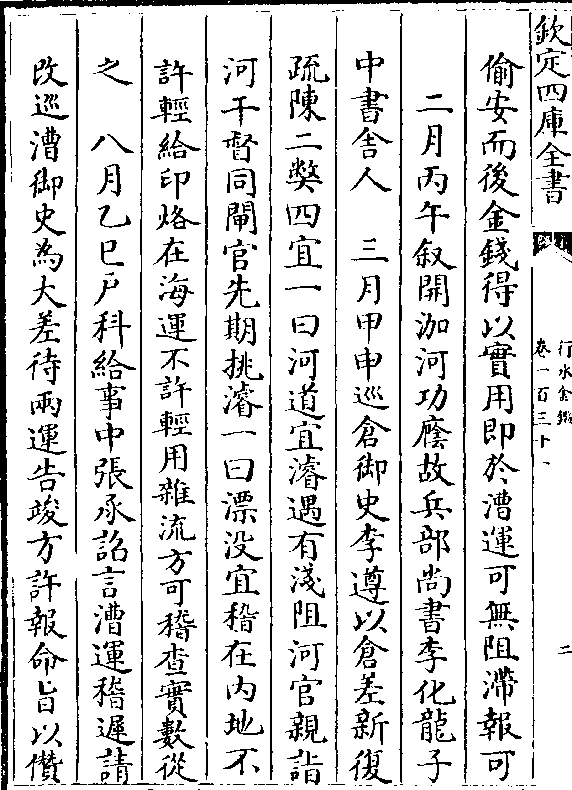 欽定四庫全書
行水金鑑
卷一百三十一
二
偷安而後金錢得以實用即於漕運可無阻滯報可
二月丙午叙開泇河功廕故兵部尚書李化龍子
中書舍人　三月甲申巡倉御史李遵以倉差新復
疏陳二弊四宜一曰河道宜濬遇有淺阻河官親詣
河干督同閘官先期挑濬一曰漂没宜稽在内地不
許輕給印烙在海運不許輕用雜流方可稽查實數從
之　八月乙巳戶科給事中張承詔言漕運稽遲請
改巡漕御史為大差待兩運告竣方許報命旨以儹